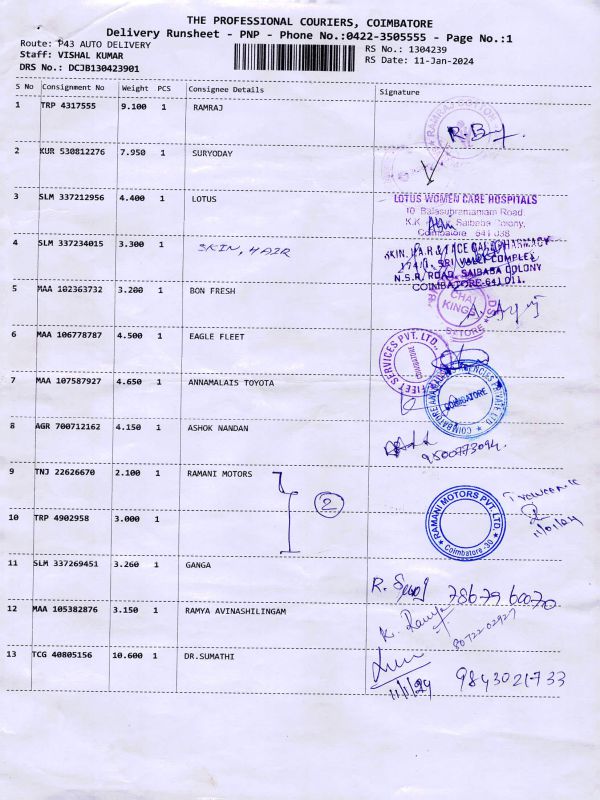 THE PROFESSIONAL COURIERS, COIMBATORE
Delivery Runsheet - PNP - Phone No.:0422-3505555 - Page No.:1
Route: P43 AUTO DELIVERY
Staff: VISHAL KUMAR
DRS No.: DCJB130423901
RS No.: 1304239
RS Date: 11-Jan-2024
S No Consignment No Weight PCS Consignee Details Signature
1 TRP 4317555 9.100 1 RAMRAJ
RAMRAJ COTTON
2 KUR 530812276 7.950 1 SURYODAY
3 SLM 337212956 4.400 1 LOTUS
LOTUS WOMEN CARE HOSPITALS
10 Balasubramaniam Road
K.K. Saibaba Colony,
Coimbatore 641 038
4 SLM 337234015 3.300 1 SKIN, HAIR
SKIN, HAIR & FACE CARE PHARMACY
COMPLEX
N.S.R. ROAD, SAIBABA COLONY
COIMBATORE-641 011.
5 MAA 102363732 3.200 1 BON FRESH
CHAI KINGS
6 MAA 106778787 4.500 1 EAGLE FLEET
FLEET SERVICES PVT. LTD.,
COIMBATORE
7 MAA 107587927 4.650 1 ANNAMALAIS TOYOTA
AGENCIES PRIVATE LTD.
COIMBATORE
8 AGR 700712162 4.150 1 ASHOK NANDAN
9500773094.
9 TNJ 22626670 2.100 1 RAMANI MOTORS
2
RAMANI MOTORS PVT. LTD.
Coimbatore-30
11/01/24
10 TRP 4902958 3.000 1
11 SLM 337269451 3.260 1 GANGA
78679 60070
12 MAA 105382876 3.150 1 RAMYA AVINASHILINGAM
K. Ramya
80722 02927
13 TCG 40805156 10.600 1 DR.SUMATHI
11/1/24
9843021733